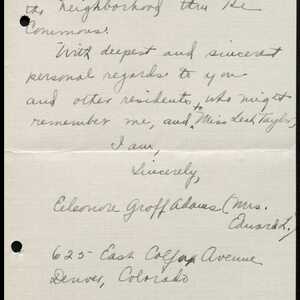 the Neighborhood thru the
Commons.
With deepest and sincerest
personal regards to you
and other residents who might
remember me, and to Miss Leah Taylor,
I am,
Sincerely,
Eleonore Groff Adams (Mrs.
Edward L.)
625 East Colfax Avenue
Denver, Colorado